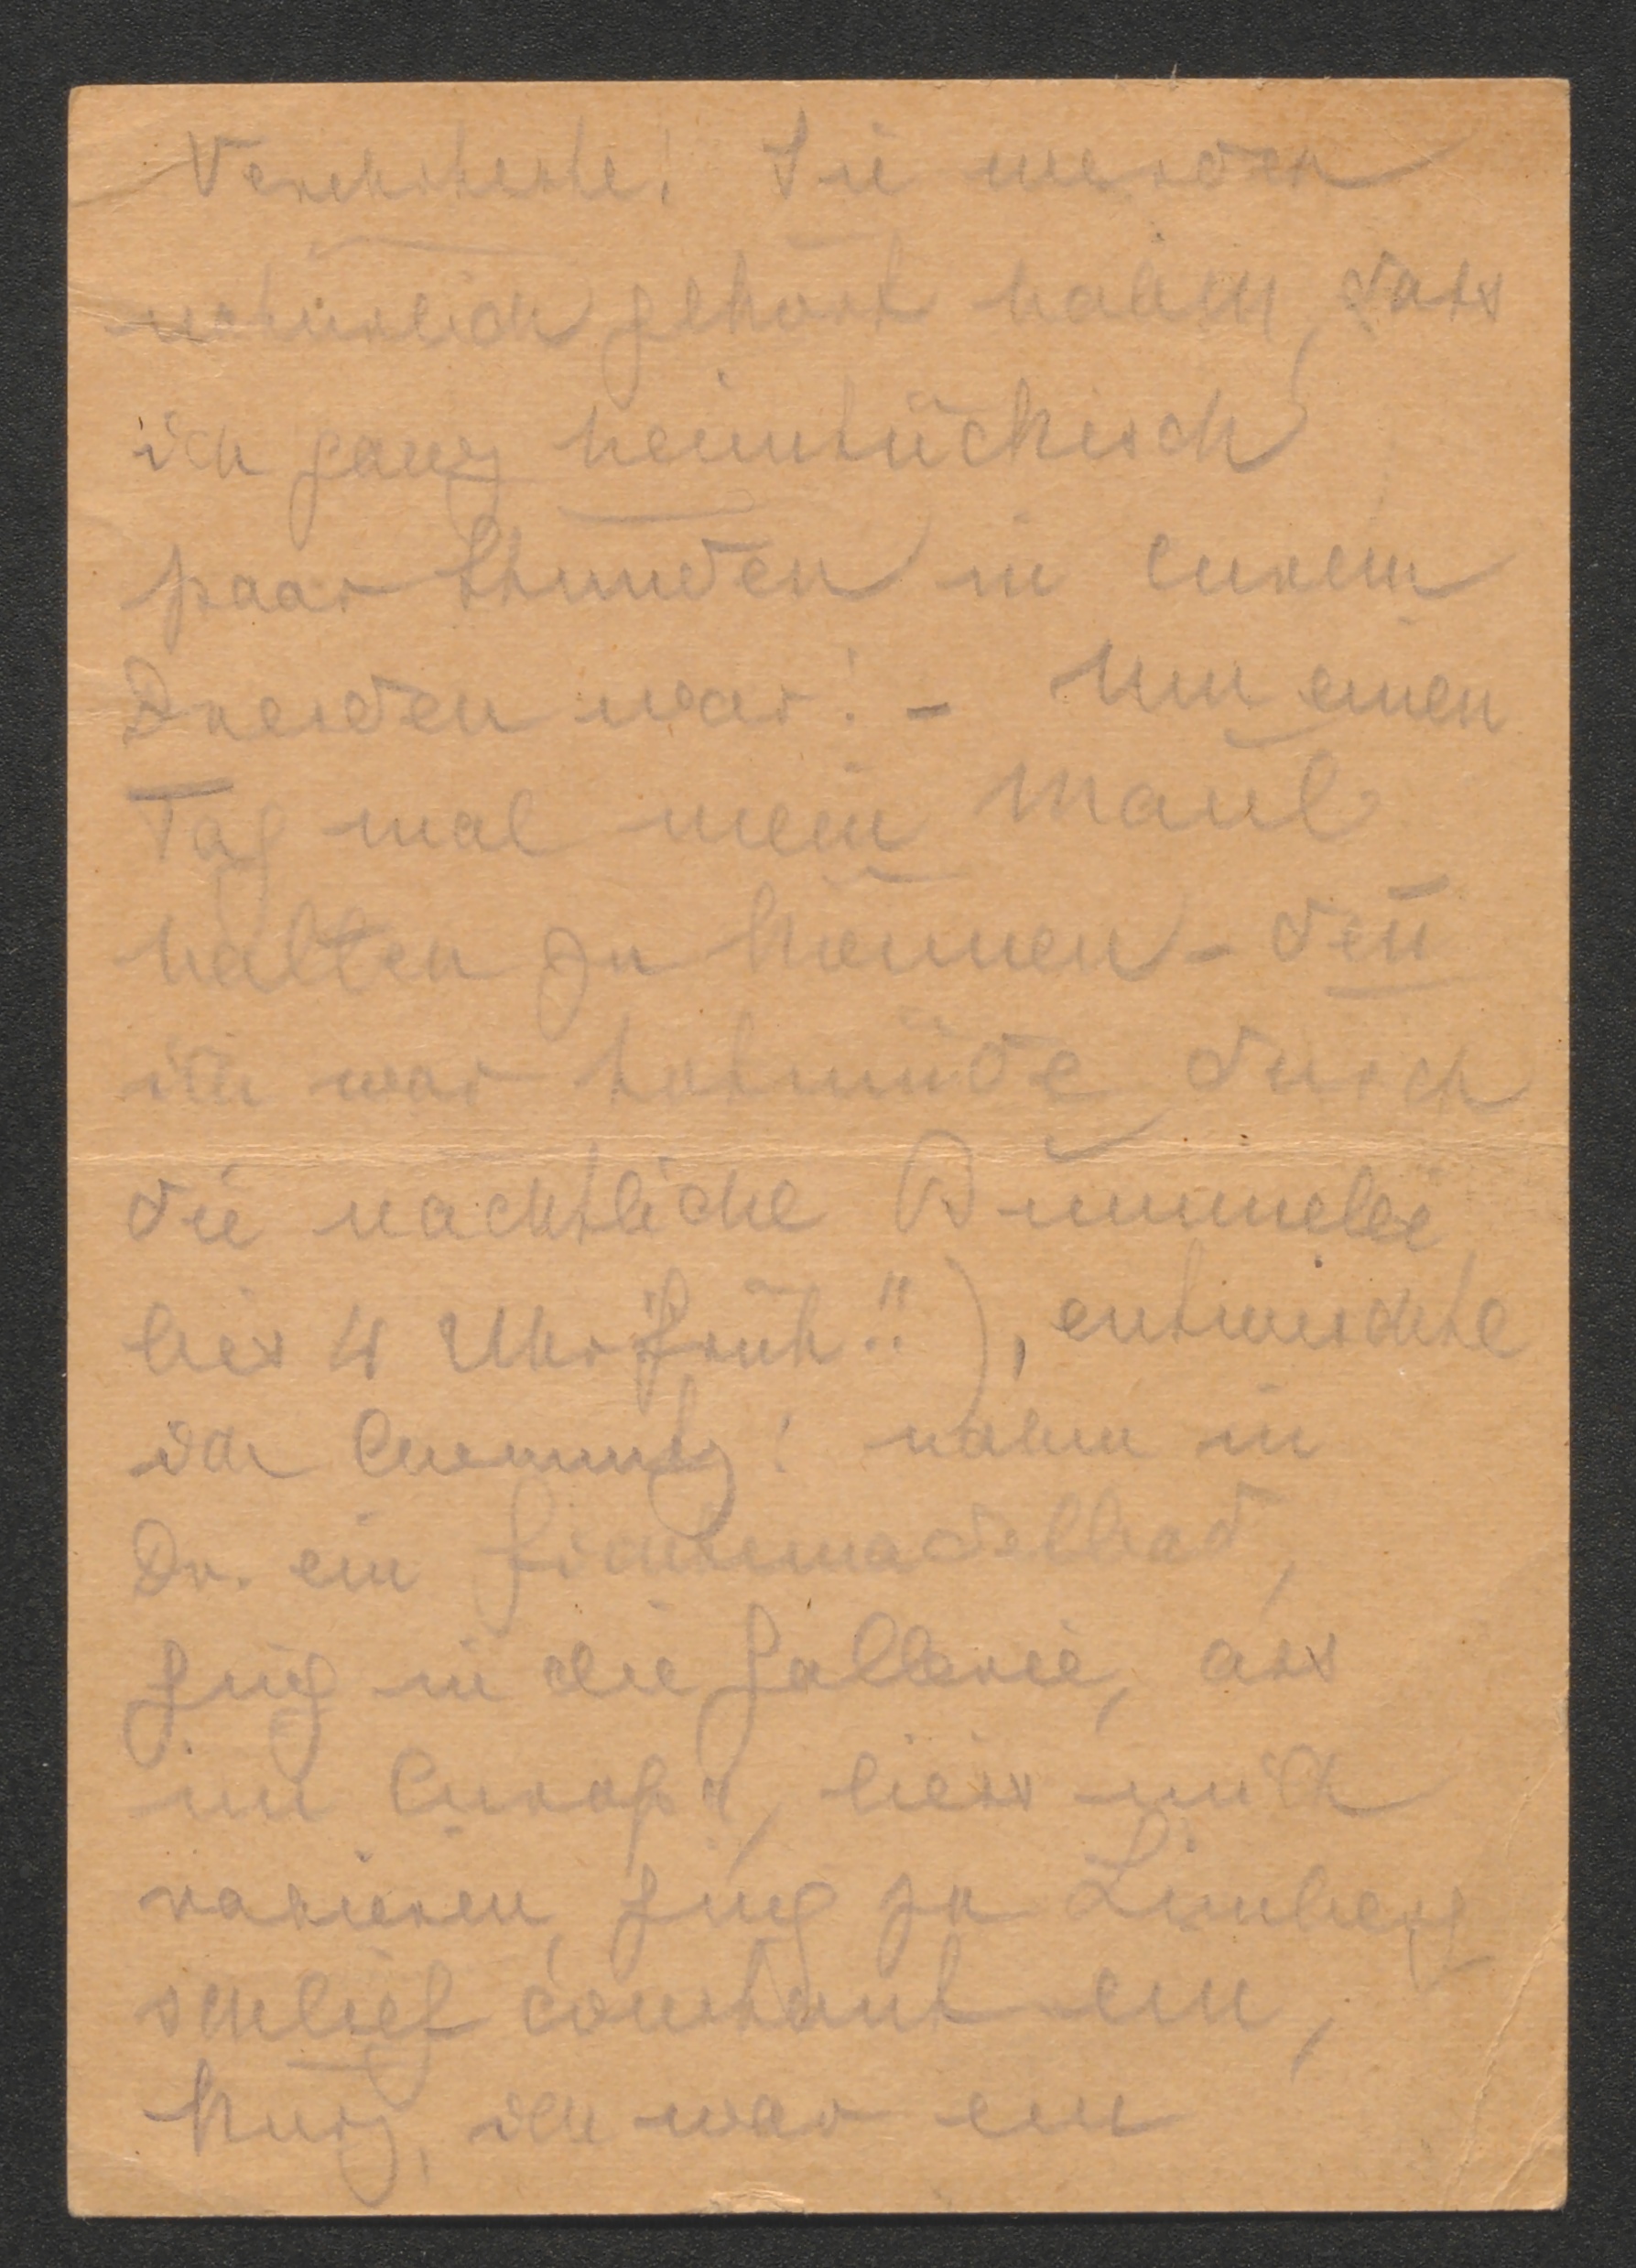 Verehrteste! Sie werden
natürlich gehört haben, dass
ich ganz heimtückisch
paar Stunden in eurem
Dresden war! - Um einen
Tag mal mein Maul
halten zu können - den̄
ich war totmüde durch
die nächtliche Bummelei
bis 4 Uhr früh!!), entwischte
ich Chemnitz! nahm in
Dr. ein Fichtennadelbad,
ging in die Gallerie, ass
im Europ., liess mich
rasieren, ging zu Limberg
schlief constant ein,
kurz, ich war ein